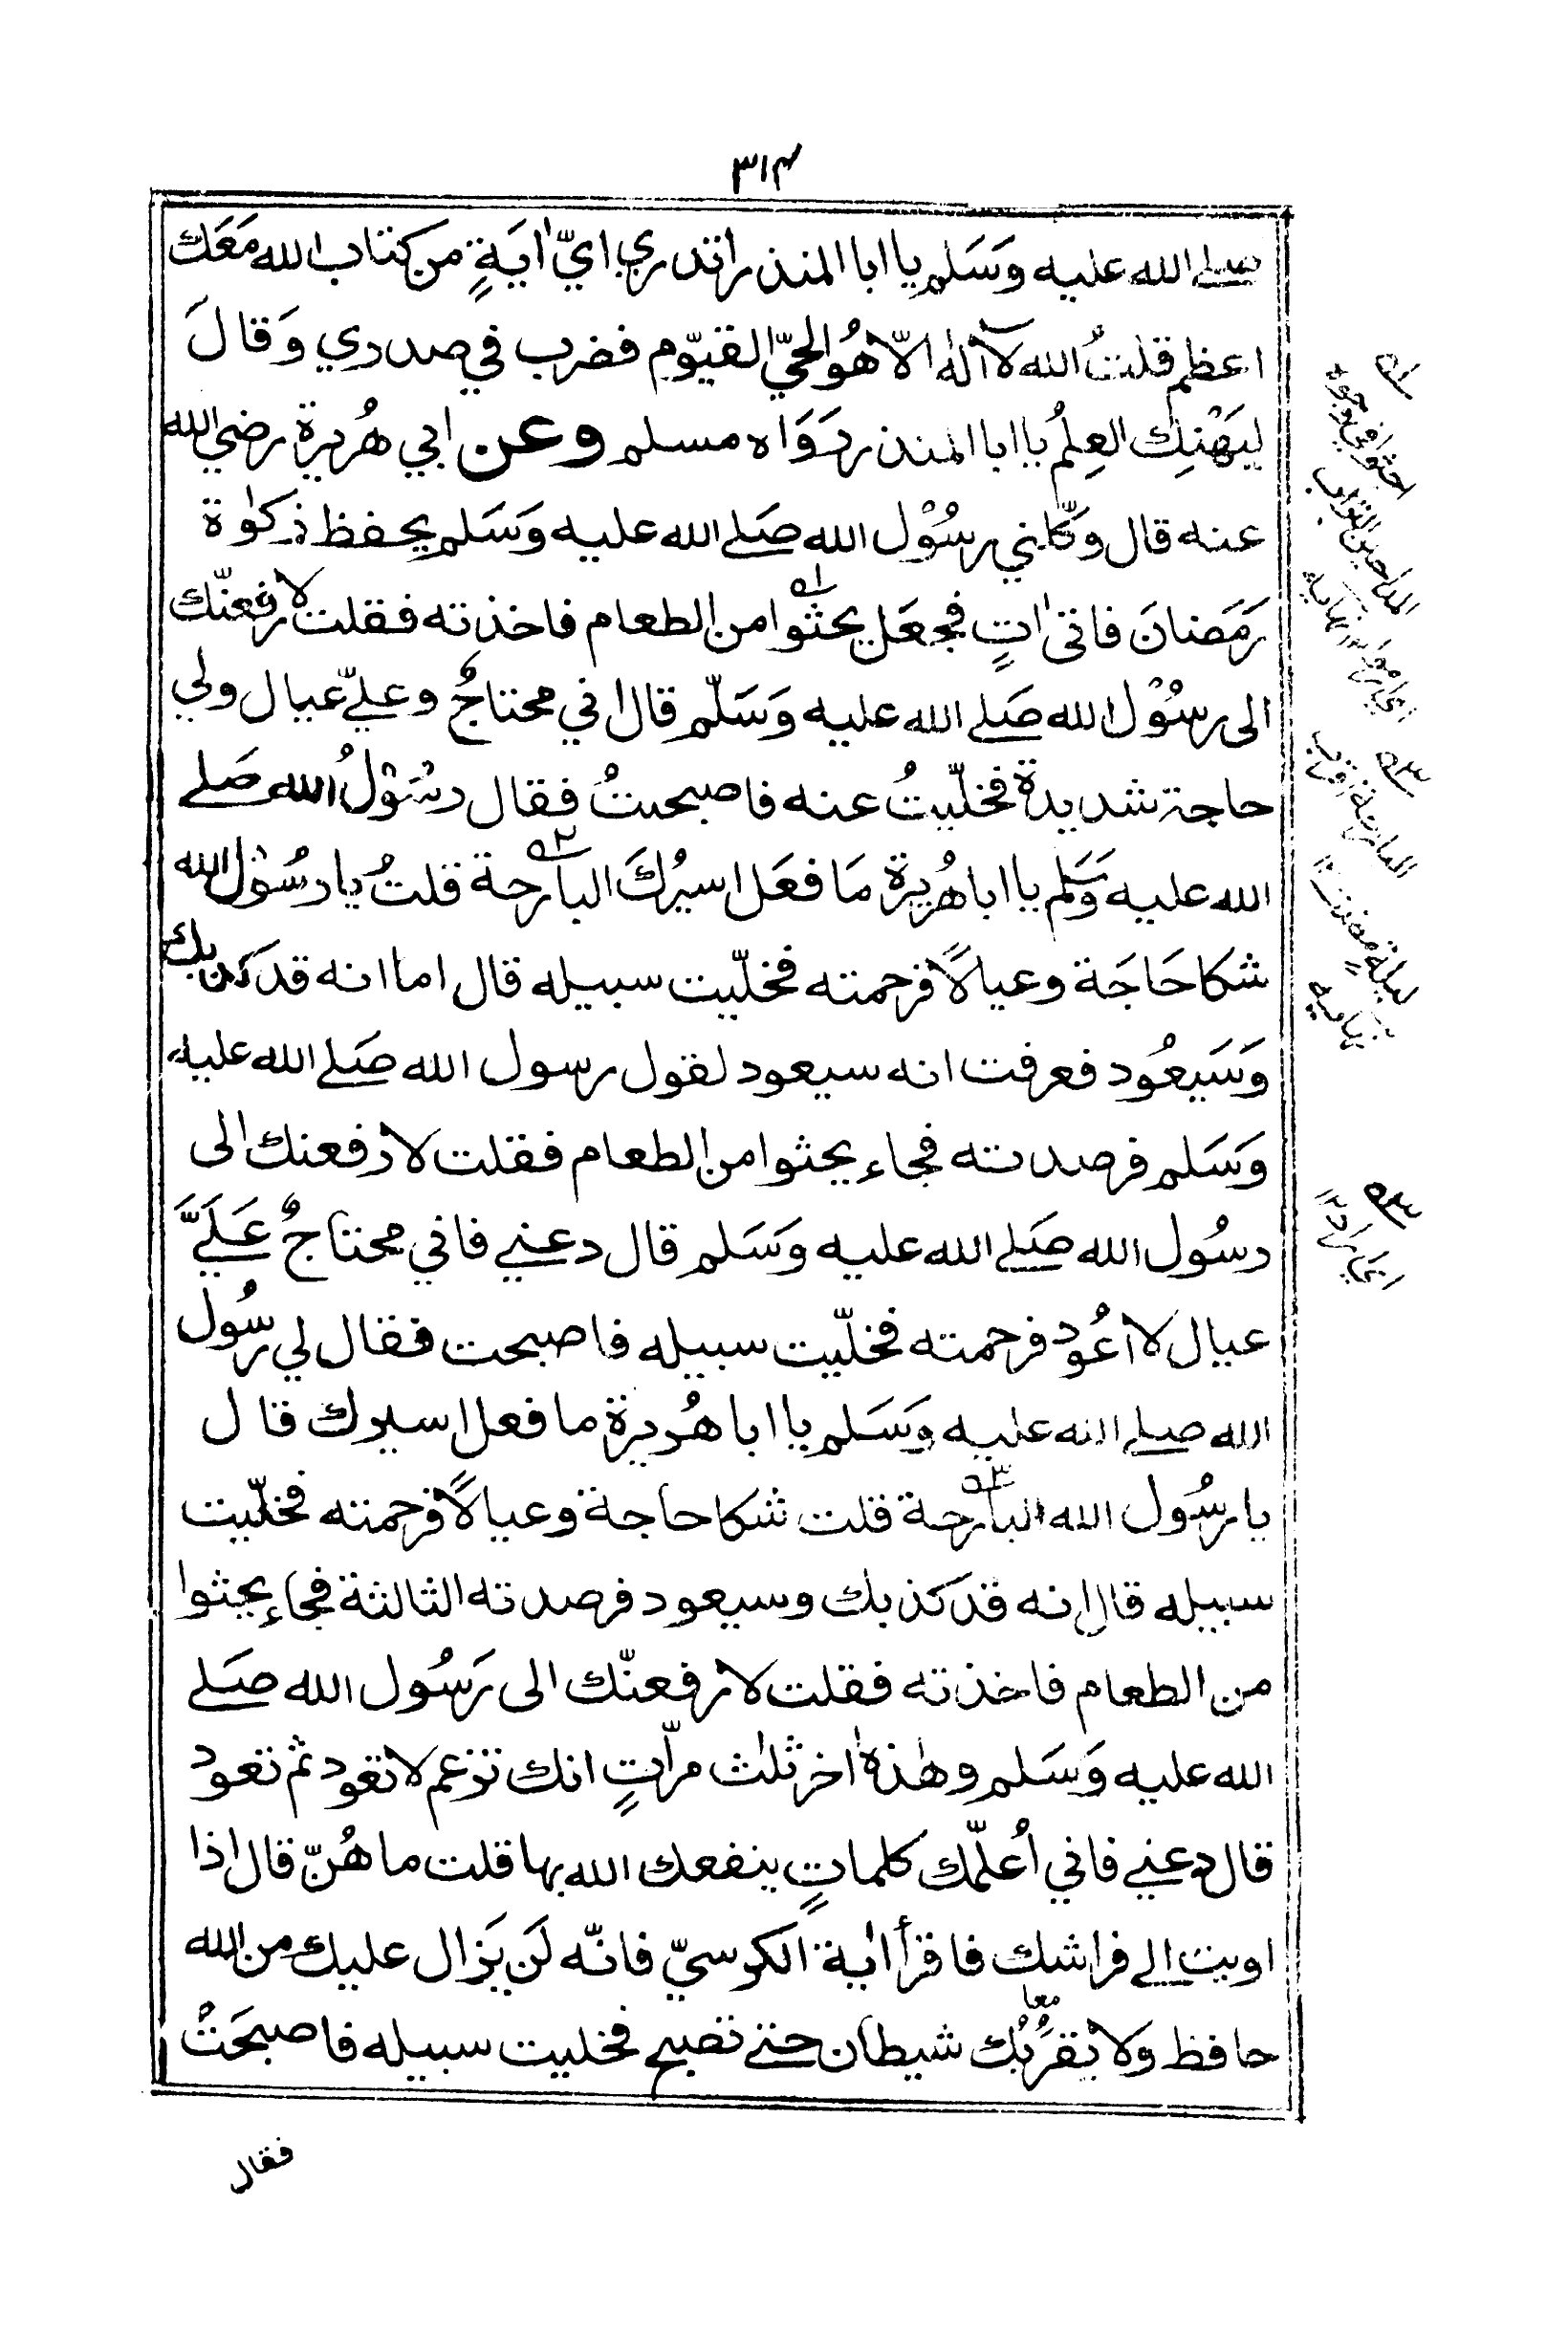 ٣١٤
صلے الله عليه وَسَلم يا ابا المنذر اتدري ايّ اٰيَةٍ من كتاب الله مَعَك
اعظم قلتُ الله لآ اله الّا هُو الحيّ القيّوم فضرب في صدري وَقالَ
ليَهْنِك العِلمُ يا ابا المنذر رَوَاه مسلم وعن ابي هُريرة رضي الله
عنه قال وكّلني رسُوْل الله صَلے الله عليه وَسَلم بحفظ زكوٰة
رَمَضانَ فاتىٰ اٰتٍ فجعَل يحثوا من الطعام فاخذته فقلت لارفعنّك
الى رسُوْل الله صَلے الله عليه وَسَلّم قال اني محتاجٌ وعليّ عيال ولي
حاجة شديدة فخلّيتُ عنه فاصبحتُ فقال رسُوْلُ الله صَلے
الله عليه وَسَلم يا ابا هُريرة مَا فعَل اسيرُكَ البارحة قلتُ يا رسُوْل الله
شكا حَاجَة وعيالًا فرحمته فخلّيت سبيله قال اما انه قد كذبك
وَسَيعُود فعرفت انه سيعود لقول رسول الله صَلے الله عليه
وَسَلم فرصدته فجاء يحثوا من الطعام فقلت لارفعنك الى
رسُول الله صَلے الله عليه وَسَلم قال دعني فاني محتاجٌ عَلَيَّ
عيال لا اعُود فرحمته فخلّيت سبيله فاصبحت فقال لي رسُول
الله صلے الله عليه وَسَلم يا ابا هُريرة ما فعل اسيرك قال
يا رسُول الله البارحة قلت شكا حاجة وعيالًا فرحمته فخلّيت
سبيله قال انه قد كذبك وسيعود فرصدته الثالثة فجاء يحثوا
من الطعام فاخذته فقلت لارفعنّك الى رَسُول الله صَلے
الله عليه وَسَلم وهٰذهٰ اخر ثلٰث مرّاتٍ انك تزعم لا تعود ثم تعود
قال دعني فاني اُعلّمك كلماتٍ ينفعك الله بها قلت ما هُنّ قال اذا
اويت الے فراشك فاقرأ اٰية الكرسيّ فانّه لَن يَزال عليك من الله
حافظ وَلا يقرُبُك شيطان حتے تصبح فخليت سبيله فاصبحَتُ
معا
فقال